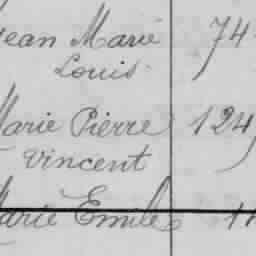 Jean Marie 74
Louis
Marie Pierre 124
Vincent
Marie Emile